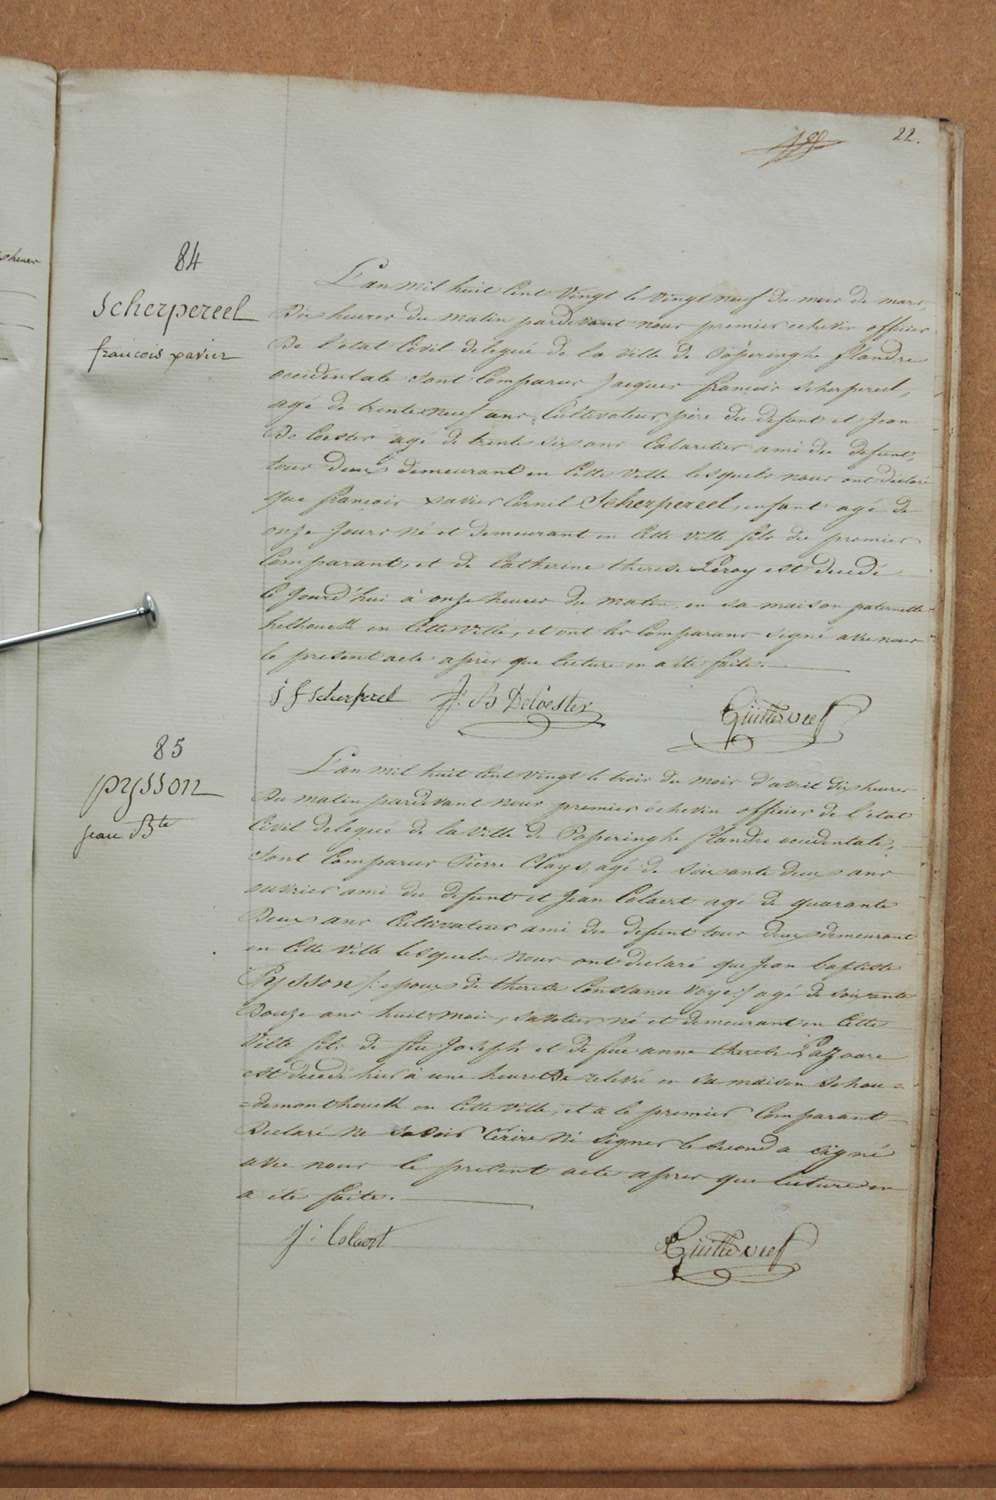 22.
84
Scherpereel
francois xavier
L'an mil huit cent vingt le vingt neuf du mois de mars,
dix heures du matin pardevant nous premier echevin officier
de l'etat Civil delegué de la ville de Poperinghe flandre
occidentale sont Comparus Jacques françois scherpereel,
agé de trente neuf ans, Cultivateur pere du defunt et Jean
De Coester agé de trente six ans Cabaretier ami du defunt,
tous deux demeurant en Cette ville lesquels nous ont déclaré
que françois xavier Cornil Scherpereel, enfant agé de
onze Jours né et demeurant en Cette ville fils du premier
Comparant, et de Catherine therese Leroy est decedé
Ce Jourd'hui à onze heures du matin, en sa maison paternelle
helhouck en Cette ville, et ont les Comparans signé avec nous
le present acte apres que lecture en a été faite.
j f scherperel J. B DeCoester Guillewief
85
pysson
jean Bte
L'an mil huit cent vingt le trois du mois d'avril dix heures
du matin pardevant nous premier échevin officier de l'etat
Civil delegué de la ville de Poperinghe flandre occidentale,
sont Comparus Pierre Clays, agé de soixante deux ans
ouvrier ami du defunt et Jean Colaert agé de quarante
deux ans Cultivateur ami du defunt tous deux demeurant
en Cette ville lesquels nous ont declaré que Jean baptiste
Pysson /: epoux de therese Constance Naye :/ agé de soixante
douze ans huit mois, savetier né et demeurant en Cette
Ville fils de feu Joseph et de feue anne therese Lazoore
est decedé hier à une heure de relevée en sa maison schou=
=demonthouck en Cette ville, et a le premier Comparant
Declaré ne savoir Ecrire ni signer le second a signé
avec nous le present acte apres que lecture en
a été faite.
J: Colaert Guillewief